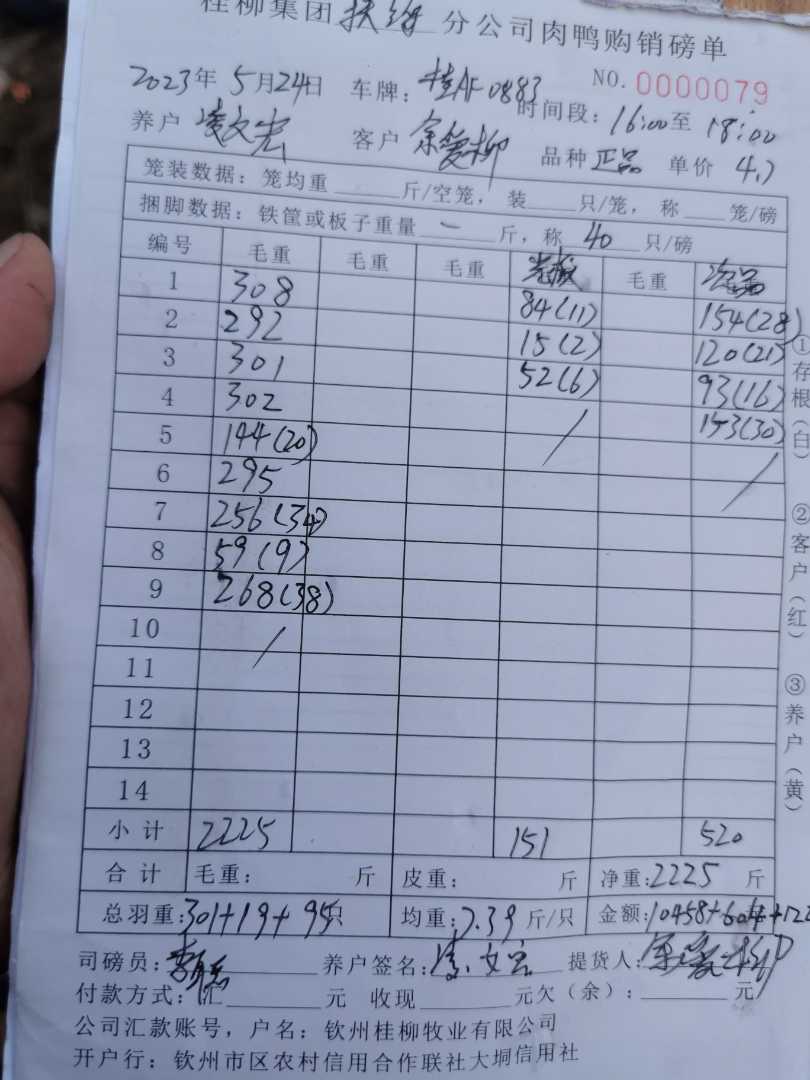 桂柳集团扶绥分公司肉鸭购销磅单
2023年5月24日 车牌：桂AF0883 NO.0000079
养户 凌文宏 客户 余爱柳 时间段：16:00至18:00
品种 正品 单价 4.7
笼装数据：笼均重 斤/空笼，装 只/笼，称 笼/磅
捆脚数据：铁筐或板子重量 一 斤，称 40 只/磅
编号 毛重 毛重 毛重 毛重 次品
1 308 84(11) 154(28)
2 292 15(2) 120(21)
3 301 52(6) 93(16)
4 302 / 153(30)
5 144(20) /
6 295
7 256(34)
8 59(9)
9 268(38)
10 /
11
12
13
14
小计 2225 151 520
合计 毛重： 斤 皮重： 斤 净重：2225 斤
总羽重：301+19+95只 均重：7.39斤/只 金额：10458+604+122
司磅员： 养户签名：凌文宏 提货人：余爱柳
付款方式：汇 元 收现 元欠（余）： 元
公司汇款账号，户名：钦州桂柳牧业有限公司
开户行：钦州市区农村信用合作联社大垌信用社
①存根（白） ②客户（红） ③养户（黄）